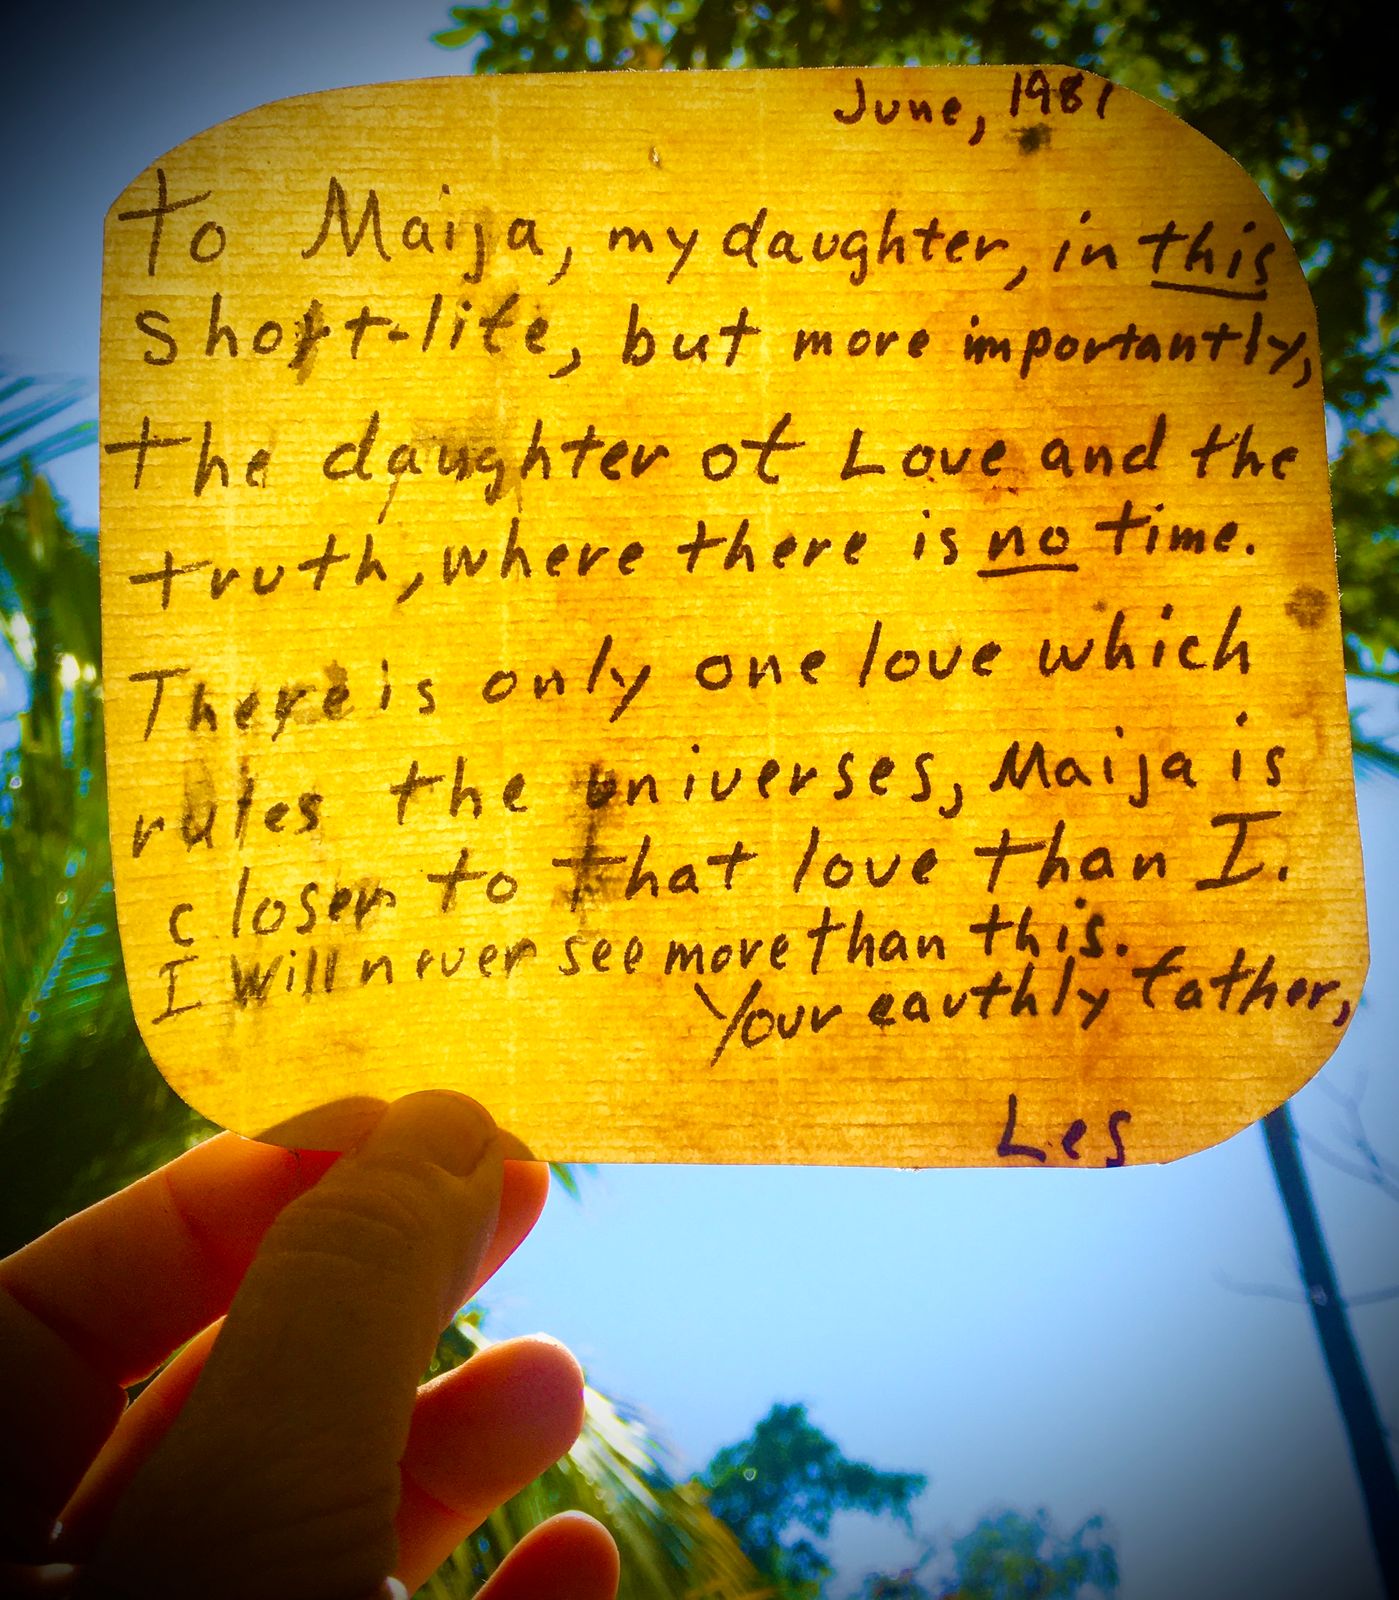 June, 1981
To Maija, my daughter, in this
short-life, but more importantly,
the daughter of Love and the
truth, where there is no time.
There is only one love which
rules the universes, Maija is
closer to that love than I.
I will never see more than this.
Your earthly father,
Les